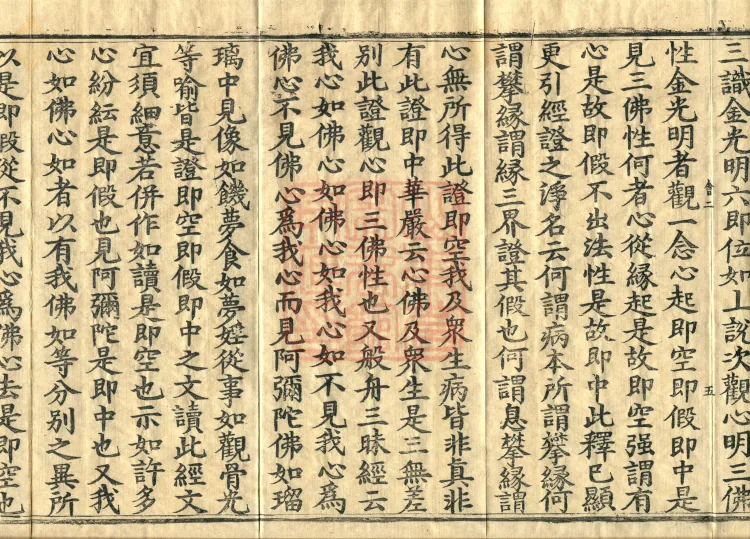 三識金光明六即位如上說次觀心明三佛
性金光明者觀一念心起即空即假即中是
會二
五
見三佛性何者心從緣起是故即空强謂有
心是故即假不出法性是故即中此釋已顯
更引經證之淨名云何謂病本所謂攀緣何
謂攀緣謂緣三界證其假也何謂息攀緣謂
心無所得此證即空我及衆生病皆非真非
有此證即中華嚴云心佛及衆生是三無差
別此證觀心即三佛性也又般舟三昧經云
我心如佛心如佛心如我心如不見我心爲
佛心不見佛心爲我心而見阿彌陀佛如瑠
璃中見像如饑夢食如夢婬從事如觀骨光
等喻皆是證即空即假即中之文讀此經文
宜須細意若併作如讀是即空也示如許多
心紛紜是即假也見阿彌陀是即中也又我
心如佛心如者以有我佛如等分別之異所
以是即假從不見我心爲佛心去是即空也